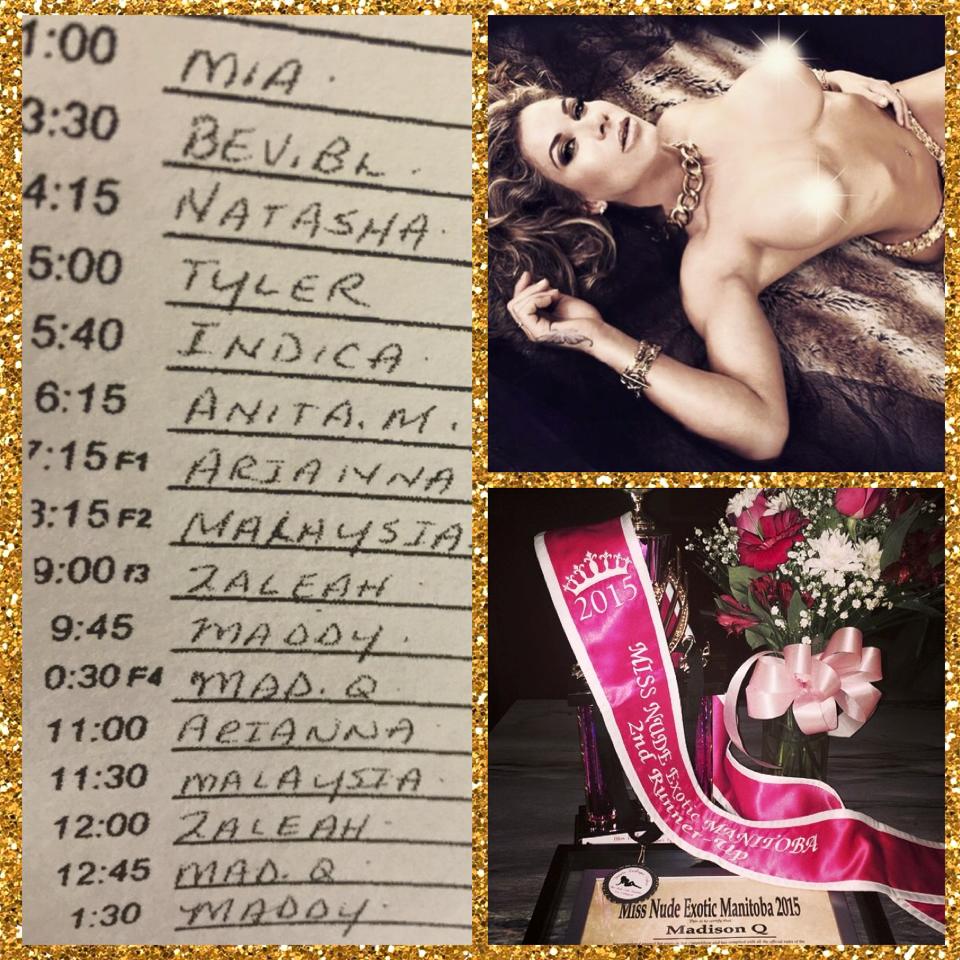 1:00 MIA.
3:30 BEV.BL.
4:15 NATASHA.
5:00 TYLER
5:40 INDICA.
6:15 ANITA.M.
7:15 F1 ARIANNA
8:15 F2 MALAYSIA
9:00 F3 ZALEAH.
9:45 MADDY.
0:30 F4 MAD. Q.
11:00 ARIANNA
11:30 MALAYSIA.
12:00 ZALEAH.
12:45 MAD. Q.
1:30 MADDY.
2015
MISS NUDE Exotic MANITOBA
2nd Runner-Up
Miss Nude Exotic Manitoba 2015
This is to certify that
Madison Q